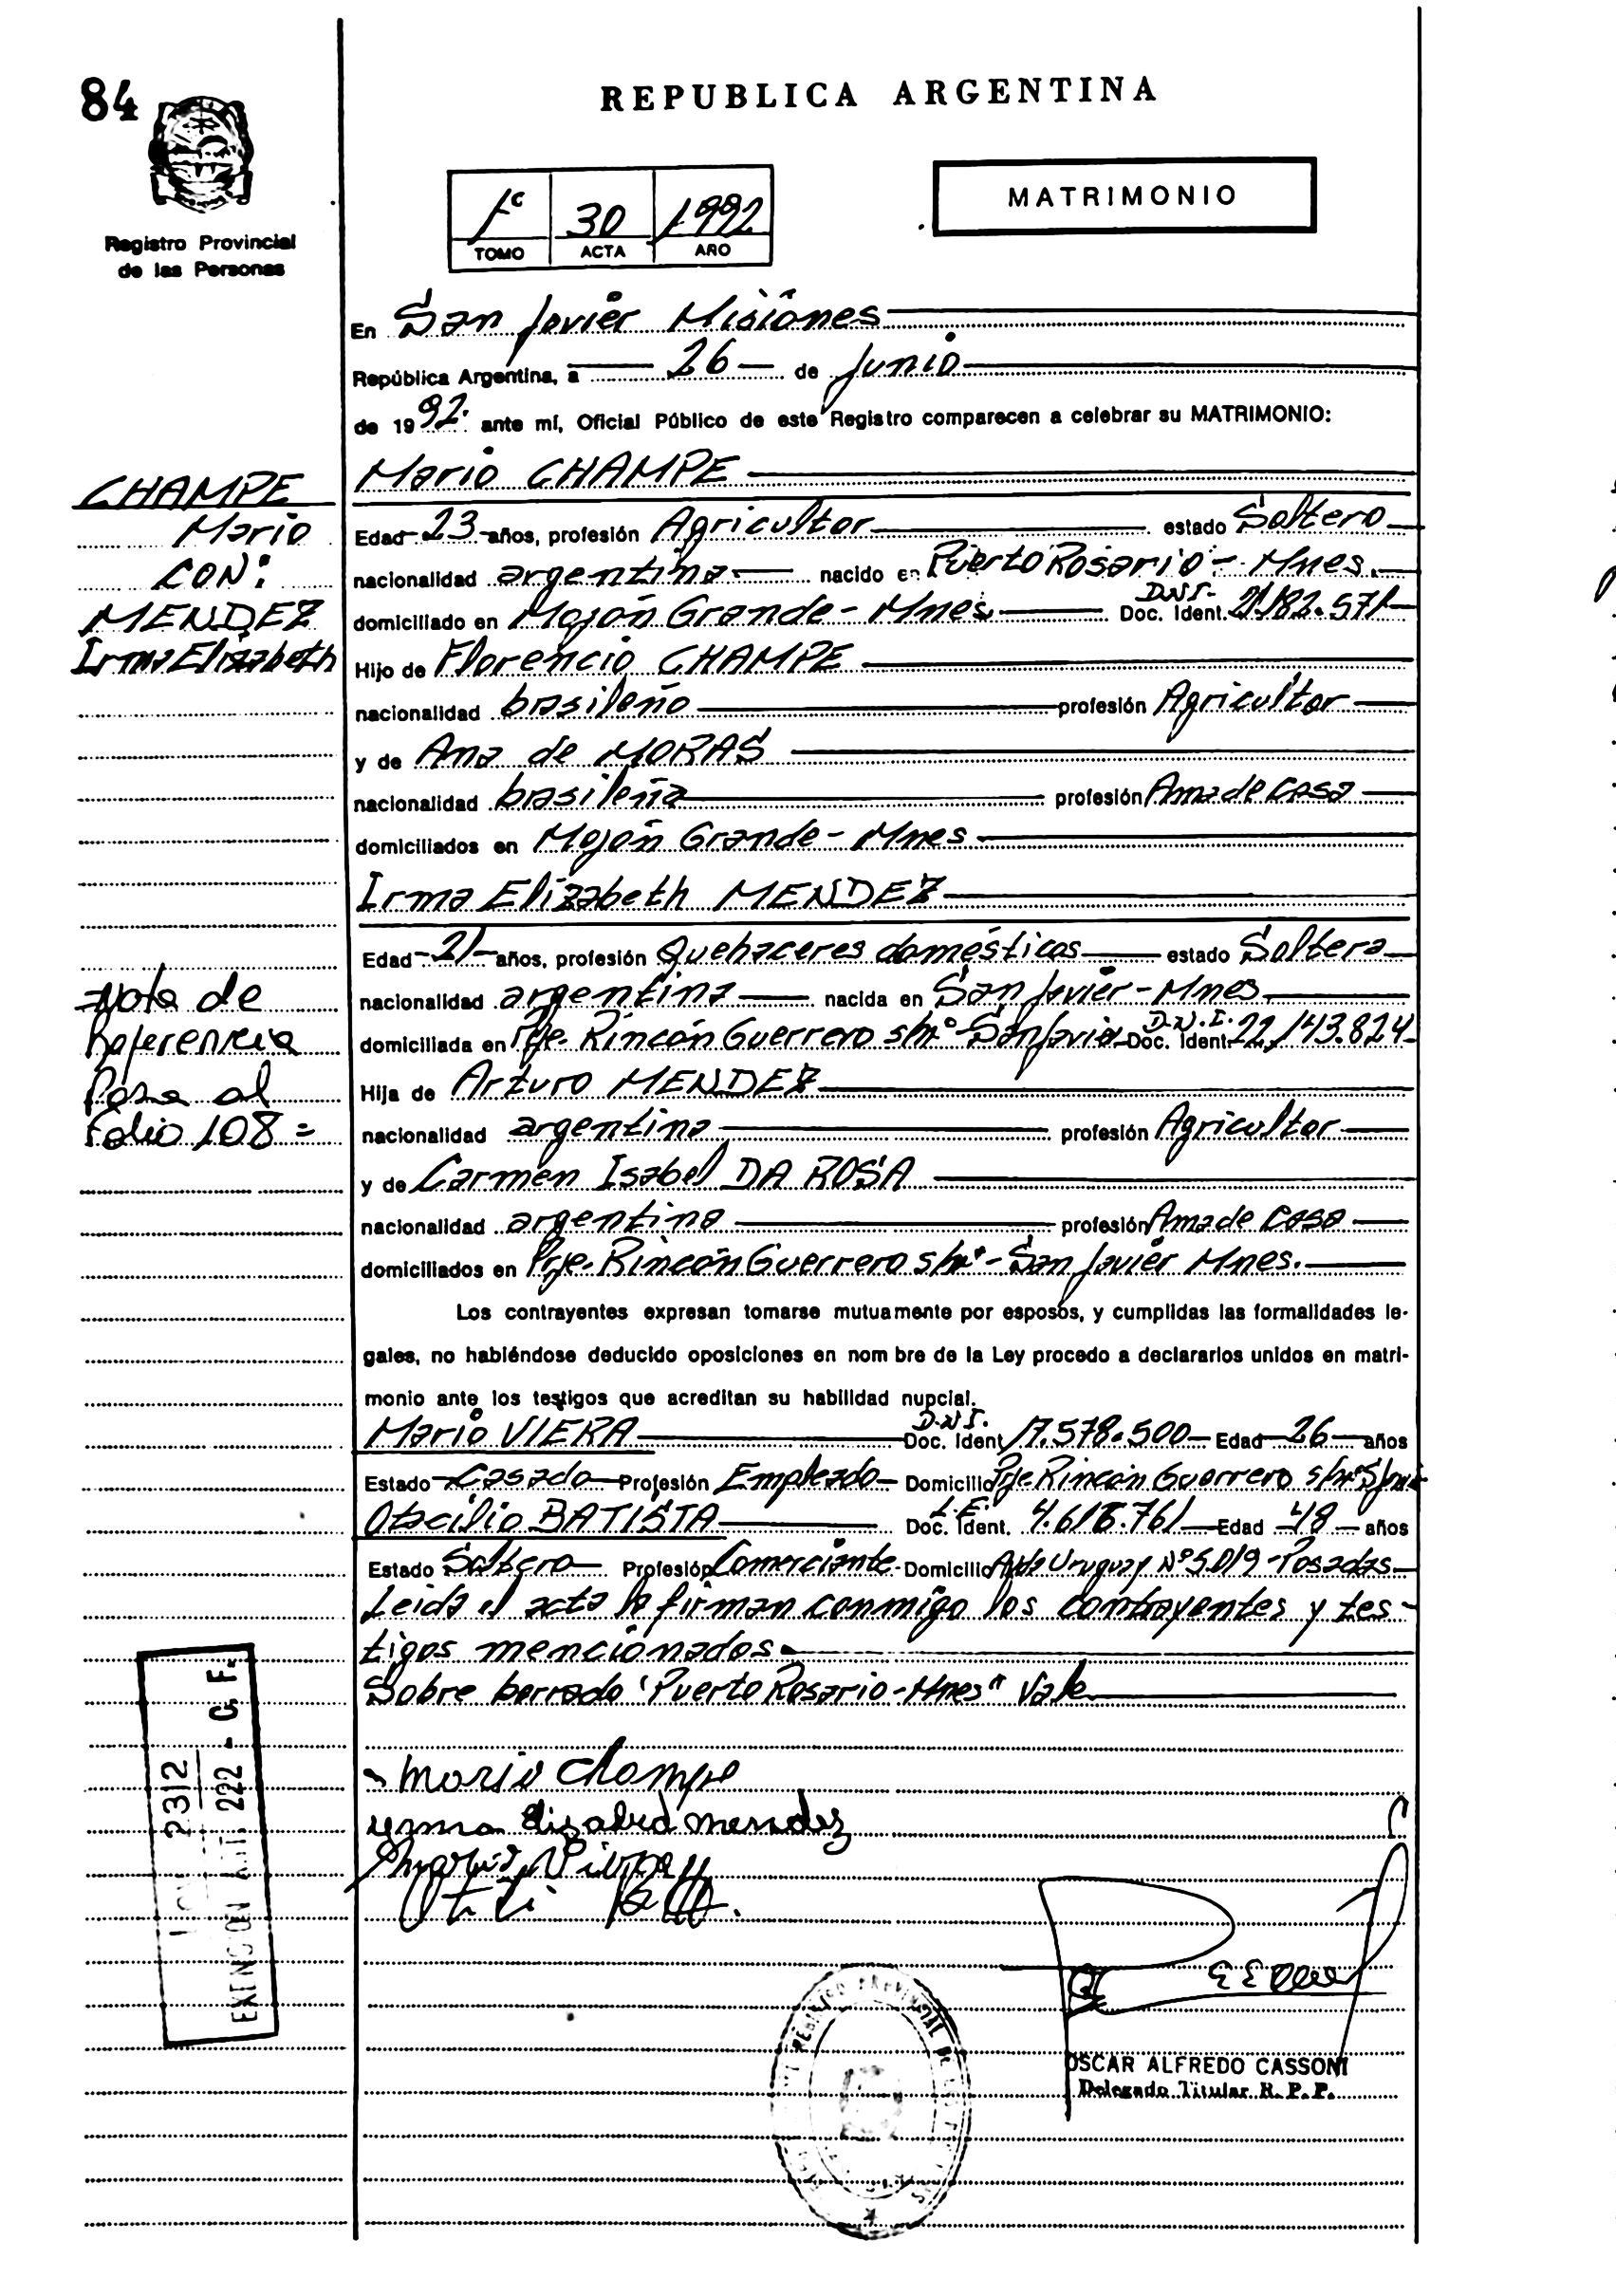 84
REPUBLICA ARGENTINA
MATRIMONIO
1º 30 1992
TOMO ACTA AÑO
Registro Provincial
de las Personas
En San Javier Misiones
República Argentina, a 26 de Junio
de 1992. ante mí, Oficial Público de este Registro comparecen a celebrar su MATRIMONIO:
CHAMPE
Mario
CON:
MENDEZ
Irma Elizabeth
Mario CHAMPE
Edad 23 años, profesión Agricultor estado Soltero
nacionalidad argentina nacido en Puerto Rosario - Mnes.
domiciliado en Mojón Grande - Mnes. Doc. Ident. D.N.I. 21.182.571
Hijo de Florencio CHAMPE
nacionalidad brasileño profesión Agricultor
y de Ana de MORAS
nacionalidad brasileña profesión Ama de Casa
domiciliados en Mojón Grande - Mnes
Irma Elizabeth MENDEZ
Edad 21 años, profesión Quehaceres domésticos estado Soltera
nacionalidad argentina nacida en San Javier - Mnes
domiciliada en Pje. Rincón Guerrero s/nº - San Javier Doc. Ident. D.N.I. 22.143.824
Hija de Arturo MENDEZ
nacionalidad argentino profesión Agricultor
y de Carmen Isabel DA ROSA
nacionalidad argentina profesión Ama de Casa
domiciliados en Pje. Rincón Guerrero s/nº - San Javier Mnes.
Nota de
Referencia
Pasa al
Folio 108 =
Los contrayentes expresan tomarse mutuamente por esposos, y cumplidas las formalidades le-
gales, no habiéndose deducido oposiciones en nom bre de la Ley procedo a declararlos unidos en matri-
monio ante los testigos que acreditan su habilidad nupcial.
Mario VIERA Doc. Ident D.N.I. 17.578.500 Edad 26 años
Estado Casado Profesión Empleado Domicilio Pje. Rincón Guerrero s/nº
Otacilio BATISTA Doc. Ident. L.E. 4.616.761 Edad 48 años
Estado Soltero Profesión Comerciante Domicilio Avda Uruguay Nº 5.019 - Posadas
Leida el acta la firman conmigo los contrayentes y tes-
tigos mencionados.
Sobre borrado "Puerto Rosario - Mnes" Vale
Mario Champe
yrma elizabed mendez
Mario Viera
OSCAR ALFREDO CASSONI
Delegado Titular R. P. P.
2312
EXENCION Art. 222 - C. F.
REGISTRO PROVINCIAL